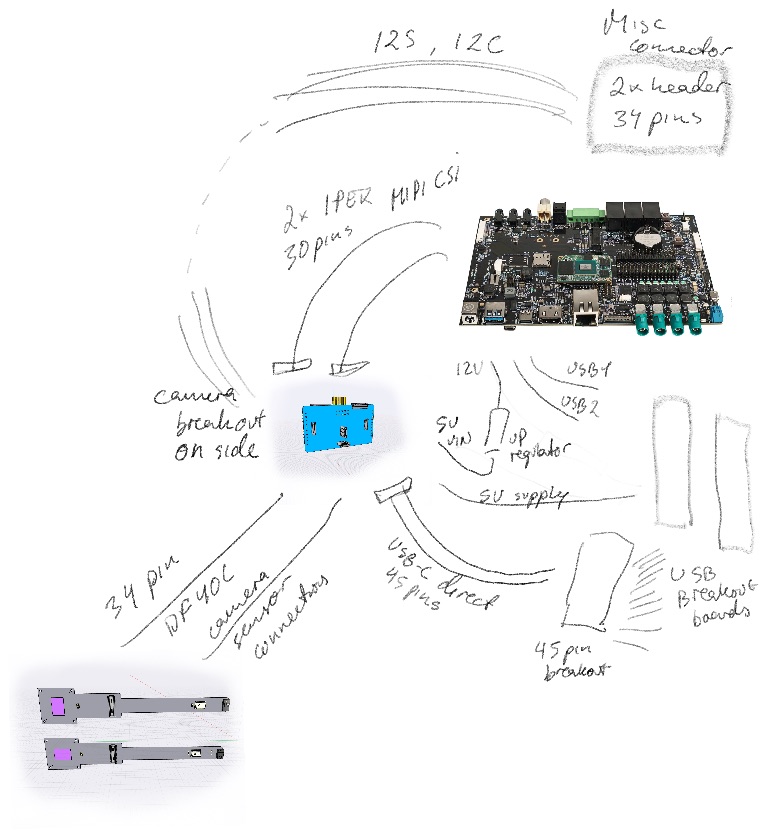 I2S, I2C
Misc
connector
2x header
34 pins
2x IPEX MIPI CSI
30 pins
camera
breakout
on side
12V
USB1
USB2
5V
VIN
UP
regulator
5V supply
USB-C direct
45 pins
USB
Breakout
boards
45 pin
breakout
34 pin
DF40C
camera
sensor
connections